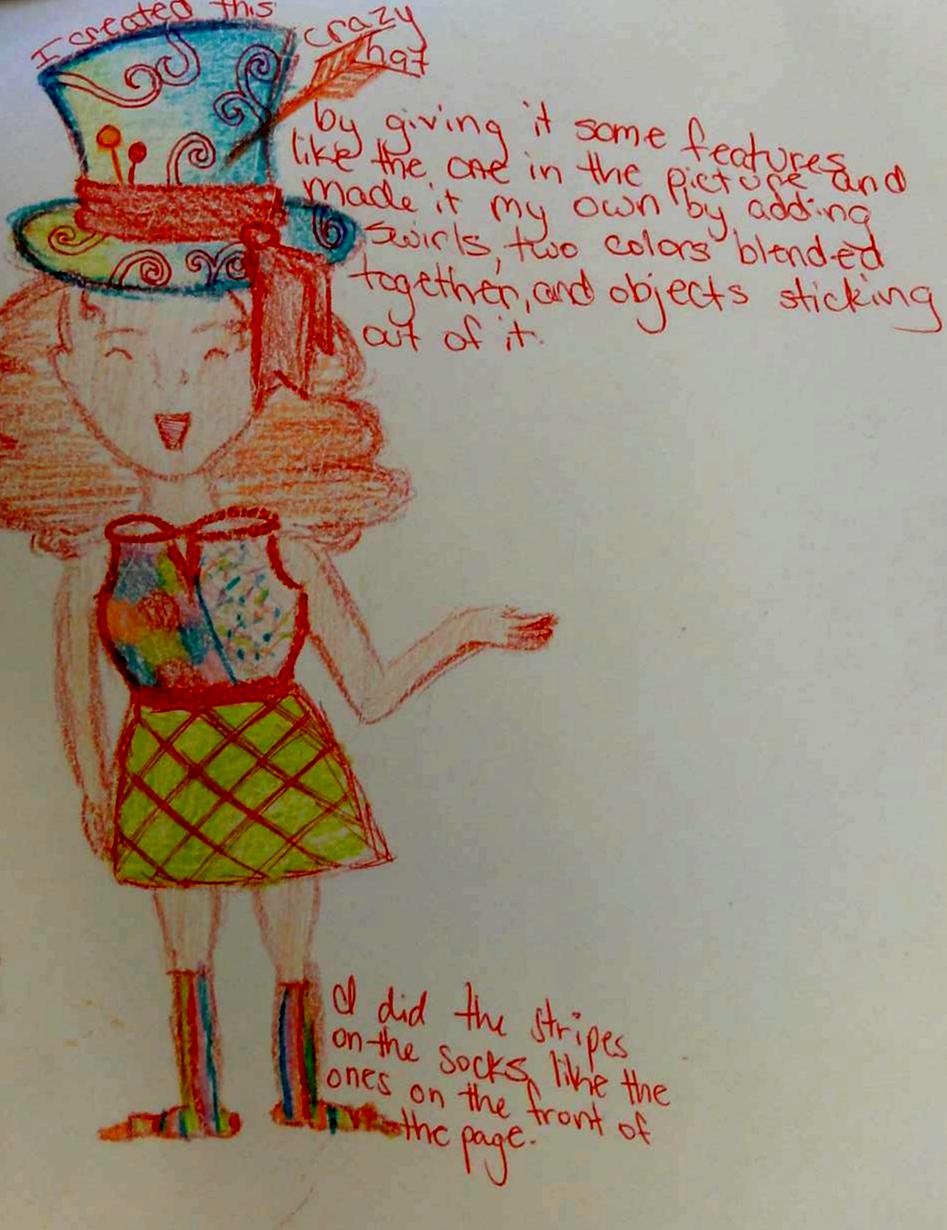 I created this crazy
hat
by giving it some features
like the one in the picture and
made it my own by adding
swirls, two colors blended
together, and objects sticking
out of it.
I did the stripes
on the socks, like the
ones on the front of
the page.